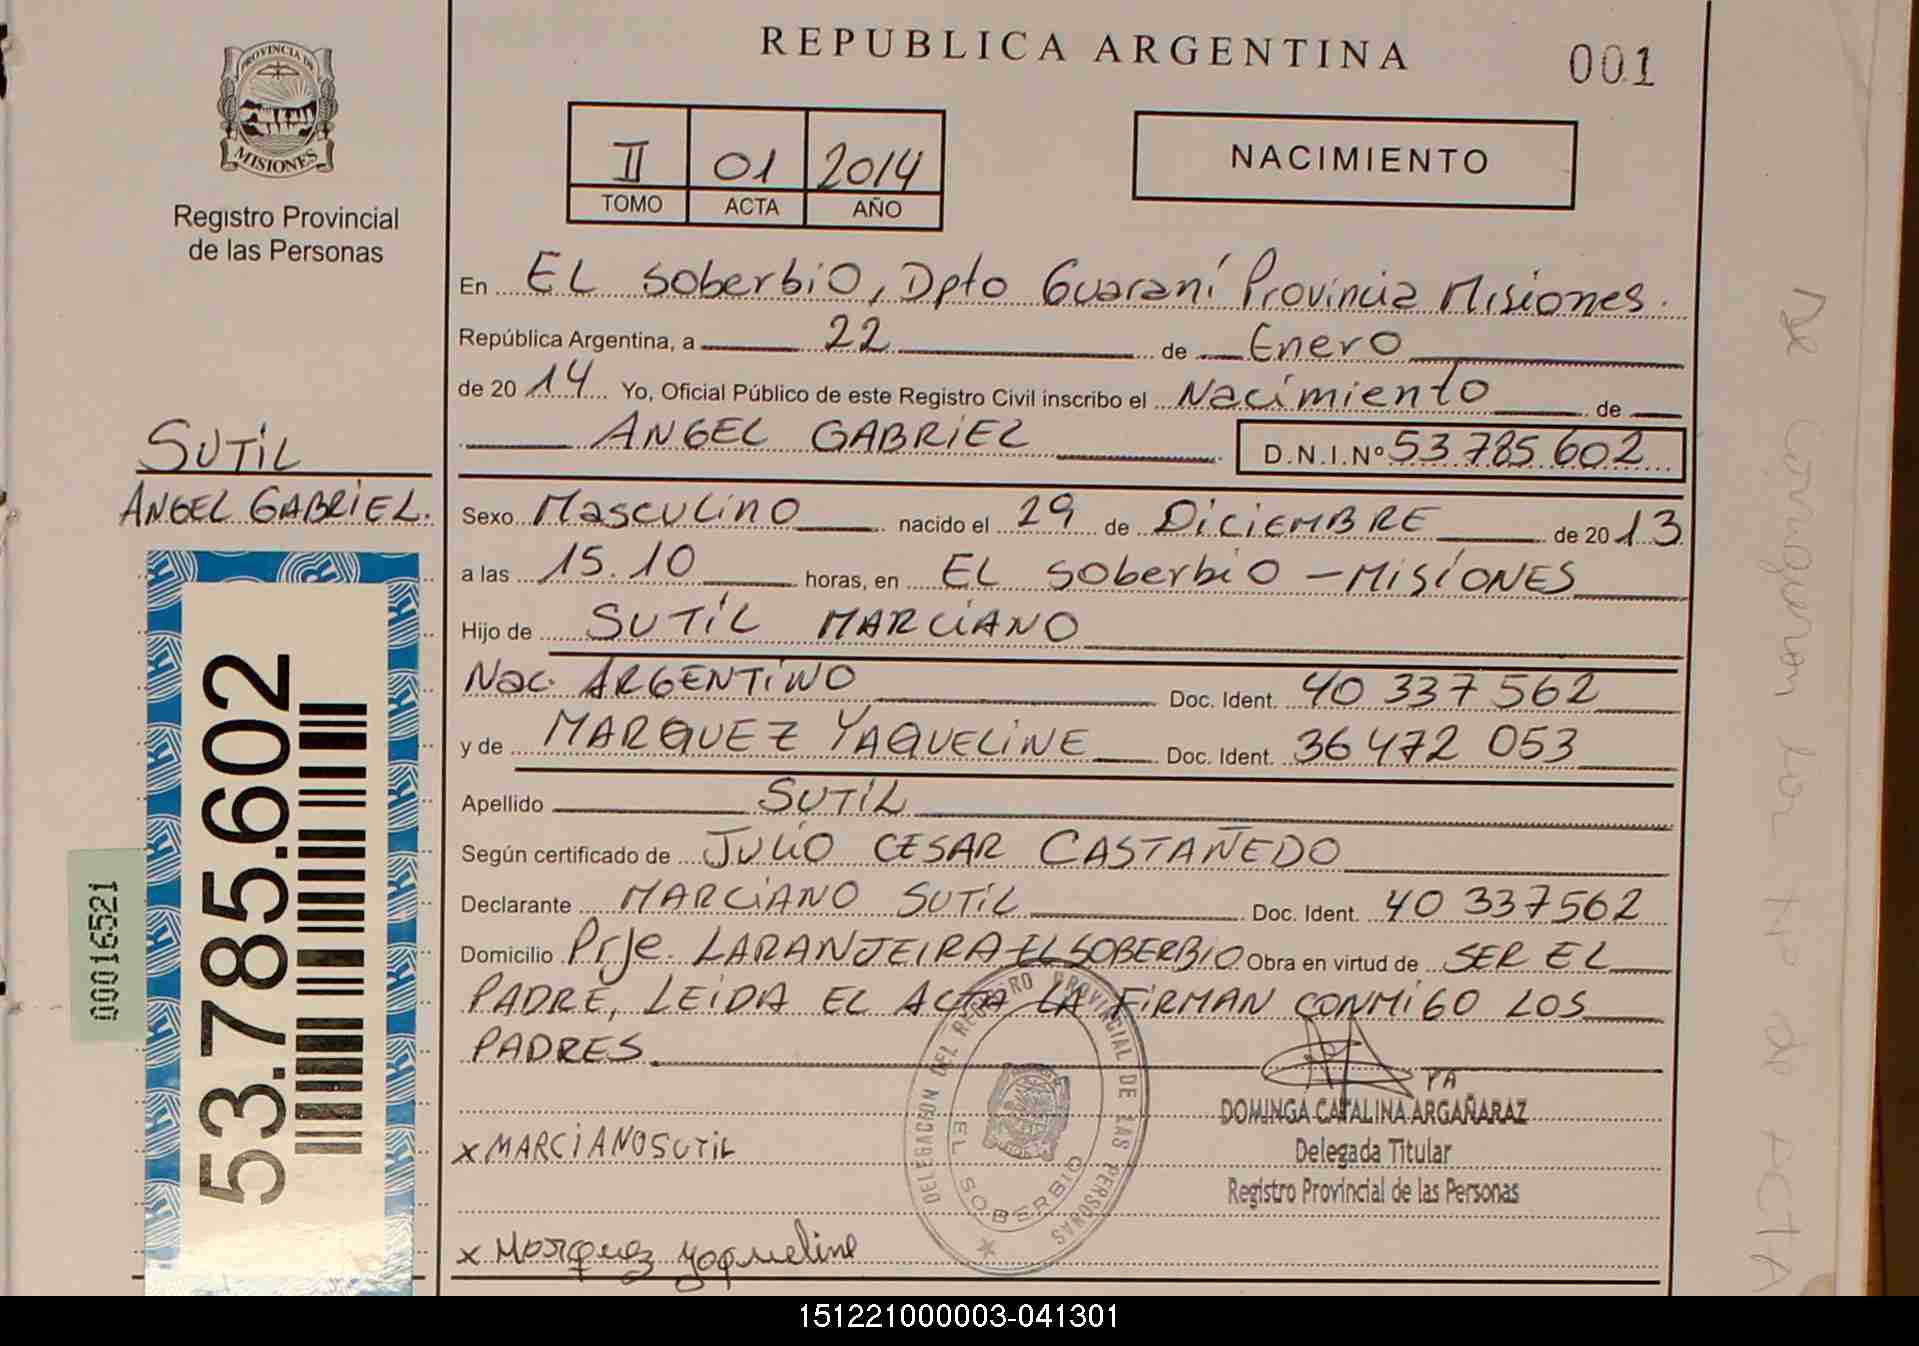 REPUBLICA ARGENTINA
001
PROVINCIA DE
MISIONES
Registro Provincial
de las Personas
II 01 2014
TOMO ACTA AÑO
NACIMIENTO
En EL Soberbio, Dpto Guaraní Provincia Misiones.
República Argentina, a 22 de Enero
de 2014 Yo, Oficial Público de este Registro Civil inscribo el Nacimiento de
ANGEL GABRIEL D.N.I.Nº 53 785 602
SUTIL
ANGEL GABRIEL.
Sexo Masculino nacido el 29 de DICIEMBRE de 2013
a las 15.10 horas, en EL Soberbio - MISIONES
Hijo de SUTIL MARCIANO
Nac. ARGENTINO Doc. Ident. 40 337 562
y de MARQUEZ YAQUELINE Doc. Ident. 36 472 053
Apellido SUTIL
Según certificado de JULIO CESAR CASTAÑEDO
Declarante MARCIANO SUTIL Doc. Ident. 40 337562
Domicilio Prje. LARANJEIRA EL SOBERBIO Obra en virtud de SER EL
PADRE, LEIDA EL ACTA LA FIRMAN CONMIGO LOS
PADRES.
PA
DOMINGA CATALINA ARGAÑARAZ
Delegada Titular
Registro Provincial de las Personas
x MARCIANO SUTIL
x Marquez yaqueline
DELEGACION DEL REGISTRO PROVINCIAL DE LAS PERSONAS
EL SOBERBIO
53.785.602
00016521
151221000003-041301